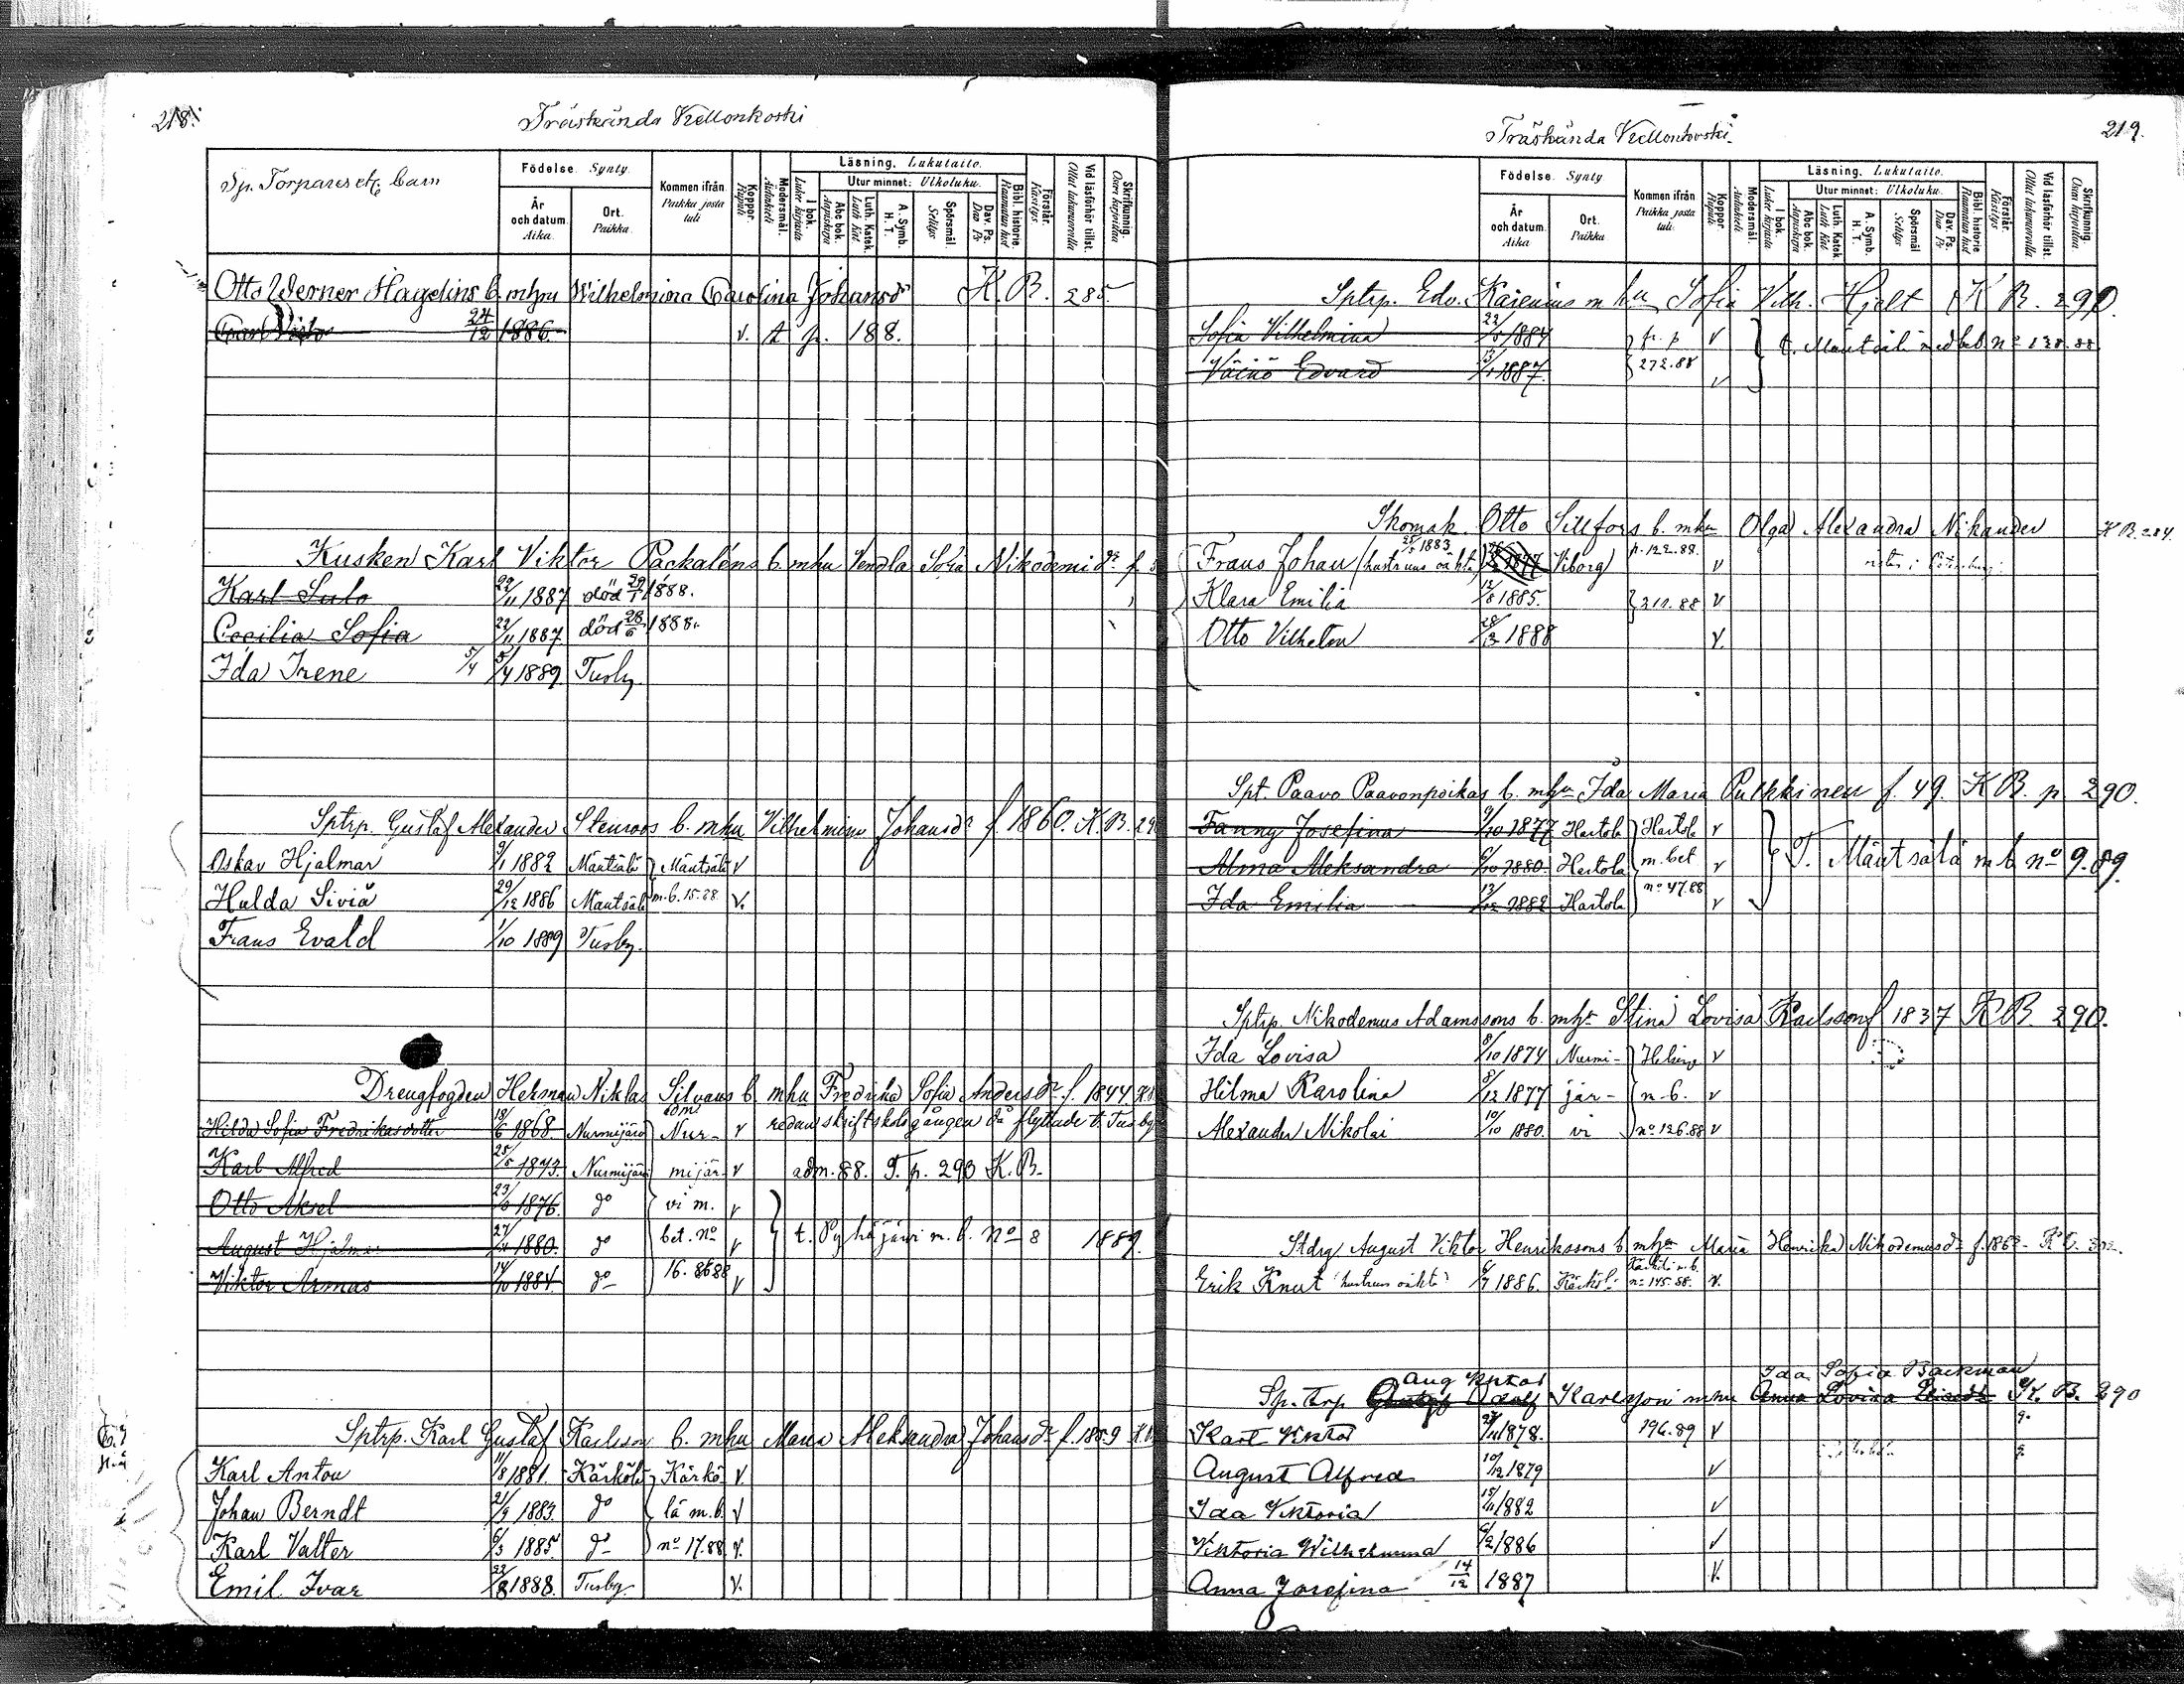 218.
Träskända Kellonkoski
Sp. Torpares etc barn
Födelse. Synty.
År och datum. Aika.
Ort. Paikka.
Kommen ifrån Paikka josta tuli
Koppor. Rupuli
Modersmål. Äidinkieli
Läsning. Lukutaito.
I bok. Lukee kirjasta
Utur minnet: Ulkoluku.
Abc bok. Aapiskirja
Luth. Katek. Luth. Kat.
A. Symb. H. T.
Spörsmål Selitys
Dav. Ps. Dav. Ps.
Bibl. historie. Raamatun hist.
Förstår. Käsitys
Vid läsförhör tillst. Ollut lukuvuorolla
Skrifkunnig. Osaa kirjoittaa
Otto Werner Hagelins b. mhu Wilhelmina Carolina Johansdr K. B. 285.
24/12 1886 v. t p. 188.
Kusken Karl Viktor Packaléns b. mhu Vendla Sofia Nikodemidr f.
Karl Sulo 22/11 1887 död 29/1 1888.
Cecilia Sofia 22/11 1887. död 28/6 1888.
Ida Irene 5/4 5/4 1889 Tusby
Sptrp. Gustaf Alexander Stenroos b. mhu Vilhelmina Johansdr f. 1860. K. B. 29
Oskar Hjalmar 9/1 1882 Mäntsälä Mäntsälä v
Hulda Siviä 29/12 1886 Mäntsälä m. b. 15.88 v.
Frans Evald 1/10 1889 Tusby.
Drengfogden Herman Niklas Silvans b mhu Fredrika Sofia Andersdr f. 1844 K B
Hilda Sofia Fredrikasdotter 18/6 1868. Nurmijärvi Nur- v redan skriftskolsgången då flyttade t. Tusby
Karl Alfred 25/5 1873. Nurmijärvi mijär- v adm. 88. T. p. 290 K. B.
Otto Aksel 1876. do vi m. v
August Hjalmar 1880. do bet. no v t. Pyhäjärvi m. b. No 8 1889.
Viktor Armas 14/10 1884. do 16. 88 v
Sptrp. Karl Gustaf Karlsson b. mhu Maria Aleksandra Johansdr f. 1859 K B
Karl Anton 11/8 1881. Kärkölä Kärkö v
Johan Berndt 21/9 1883. do lä m. b. v
Karl Valter 6/3 1885. do no 17.88 v.
Emil Ivar 22/8 1888. Tusby v.
219.
Träskända Kellonkoski.
Födelse. Synty
År och datum. Aika
Ort. Paikka
Kommen ifrån Paikka josta tuli.
Koppor. Rupuli
Modersmål. Äidinkieli
Läsning. Lukutaito.
I bok. Lukee kirjasta
Utur minnet: Ulkoluku.
Abc bok. Aapiskirja
Luth. Katek. Luth. Kat.
A. Symb. H. T.
Spörsmål Selitys
Dav. Ps. Dav. Ps.
Bibl. historie Raamatun hist
Förstår. Käsitys
Vid läsförhör tillst. Ollut lukuvuorolla
Skrifkunnig. Osaa kirjoittaa.
Sptrp. Edv. Kajenius m hu Sofia Vilh. Hjelt K B. 290.
Sofia Vilhelmina 22/5 1884 fr. p v t. Mäntsälä med bet no 138. 88.
Väinö Edvard 1887. 272.88 v
Skomak. Otto Sillfors b. mhu Olga Alexandra Nikander K B. 284.
Frans Johan (hustruns oäkta) 1883 1877 Viborg p. 122.88. v
Klara Emilia 12/8 1885. 211.88 v
Otto Vilhelm 28/3 1888 v.
Spt. Paavo Paavonpoikas b. mhu Ida Maria Pulkkinen f. 49. K B. p 290.
Fanny Josefina 1877 Hartola Hartola v
Alma Aleksandra 1880. Hartola m. bet v T. Mäntsälä m b no 9. 89.
Ida Emilia 13/12 1882 Hartola no 47.88 v
Sptrp. Nikodemus Adamssons b. mhu Stina Lovisa Karlsson f 1837 K B. 290.
Ida Lovisa 8/10 1874 Nurmi- Helsinge v
Hilma Karolina 8/12 1877 jär- m. b. v
Alexander Nikolai 10/10 1880. vi no 126.88 v
Stdrg August Viktor Henrikssons b. mhu Maria Henrika Nikodemusdr
Erik Knut hustruns oäkta 1886. Kärköl- no 145.88. v.
Aug Viktor Ida Sofia Backman
Sp. torp Gustaf Adolf Karlsson mhu Anna Lovisa K. B. 290
Karl Viktor 1878. 196.89 v
August Alfred 10/12 1879 v
Ida Viktoria 15/11 1882 v
Viktoria Wilhelmina 6/2 1886 v
Anna Josefina 14/12 1887 v.